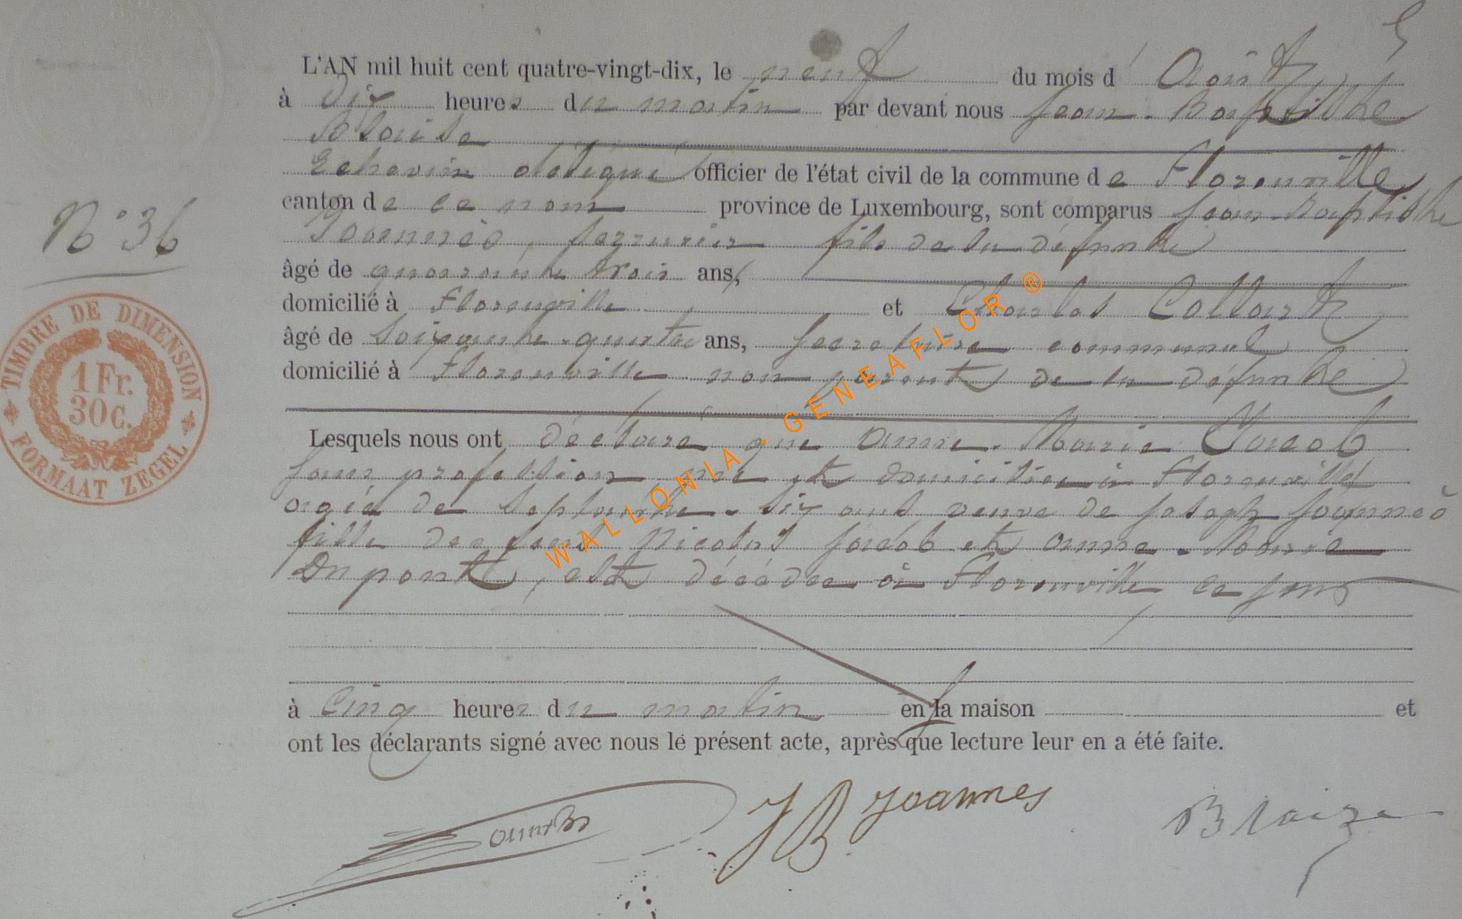 L'AN mil huit cent quatre-vingt-dix, le neuf du mois d'Août,
à dix heures du matin par devant nous Jean-Baptiste
Blaise
Echevin délégué officier de l'état civil de la commune de Florenville
canton de ce nom province de Luxembourg, sont comparus Jean-Baptiste
Joannès, serrurier fils de la défunte
âgé de quarante trois ans,
domicilié à Florenville et Charles Collart
âgé de soixante-quatre ans, secrétaire communal
domicilié à Florenville non parent de la défunte
Lesquels nous ont déclaré que Anne-Marie Jacob
sans profession née et domiciliée à Florenville
agée de septante-six ans veuve de Joseph Joannès
fille de feus Nicolas Jacob et Anne-Marie
Dupont, est décédée à Florenville, ce jour
à cinq heures du matin en sa maison et
ont les déclarants signé avec nous le présent acte, après que lecture leur en a été faite.
JB Joannes Blaize
N° 36
TIMBRE DE DIMENSION
1 Fr.
30 C.
FORMAAT ZEGEL
WALLONIA GENEAFLOR ®